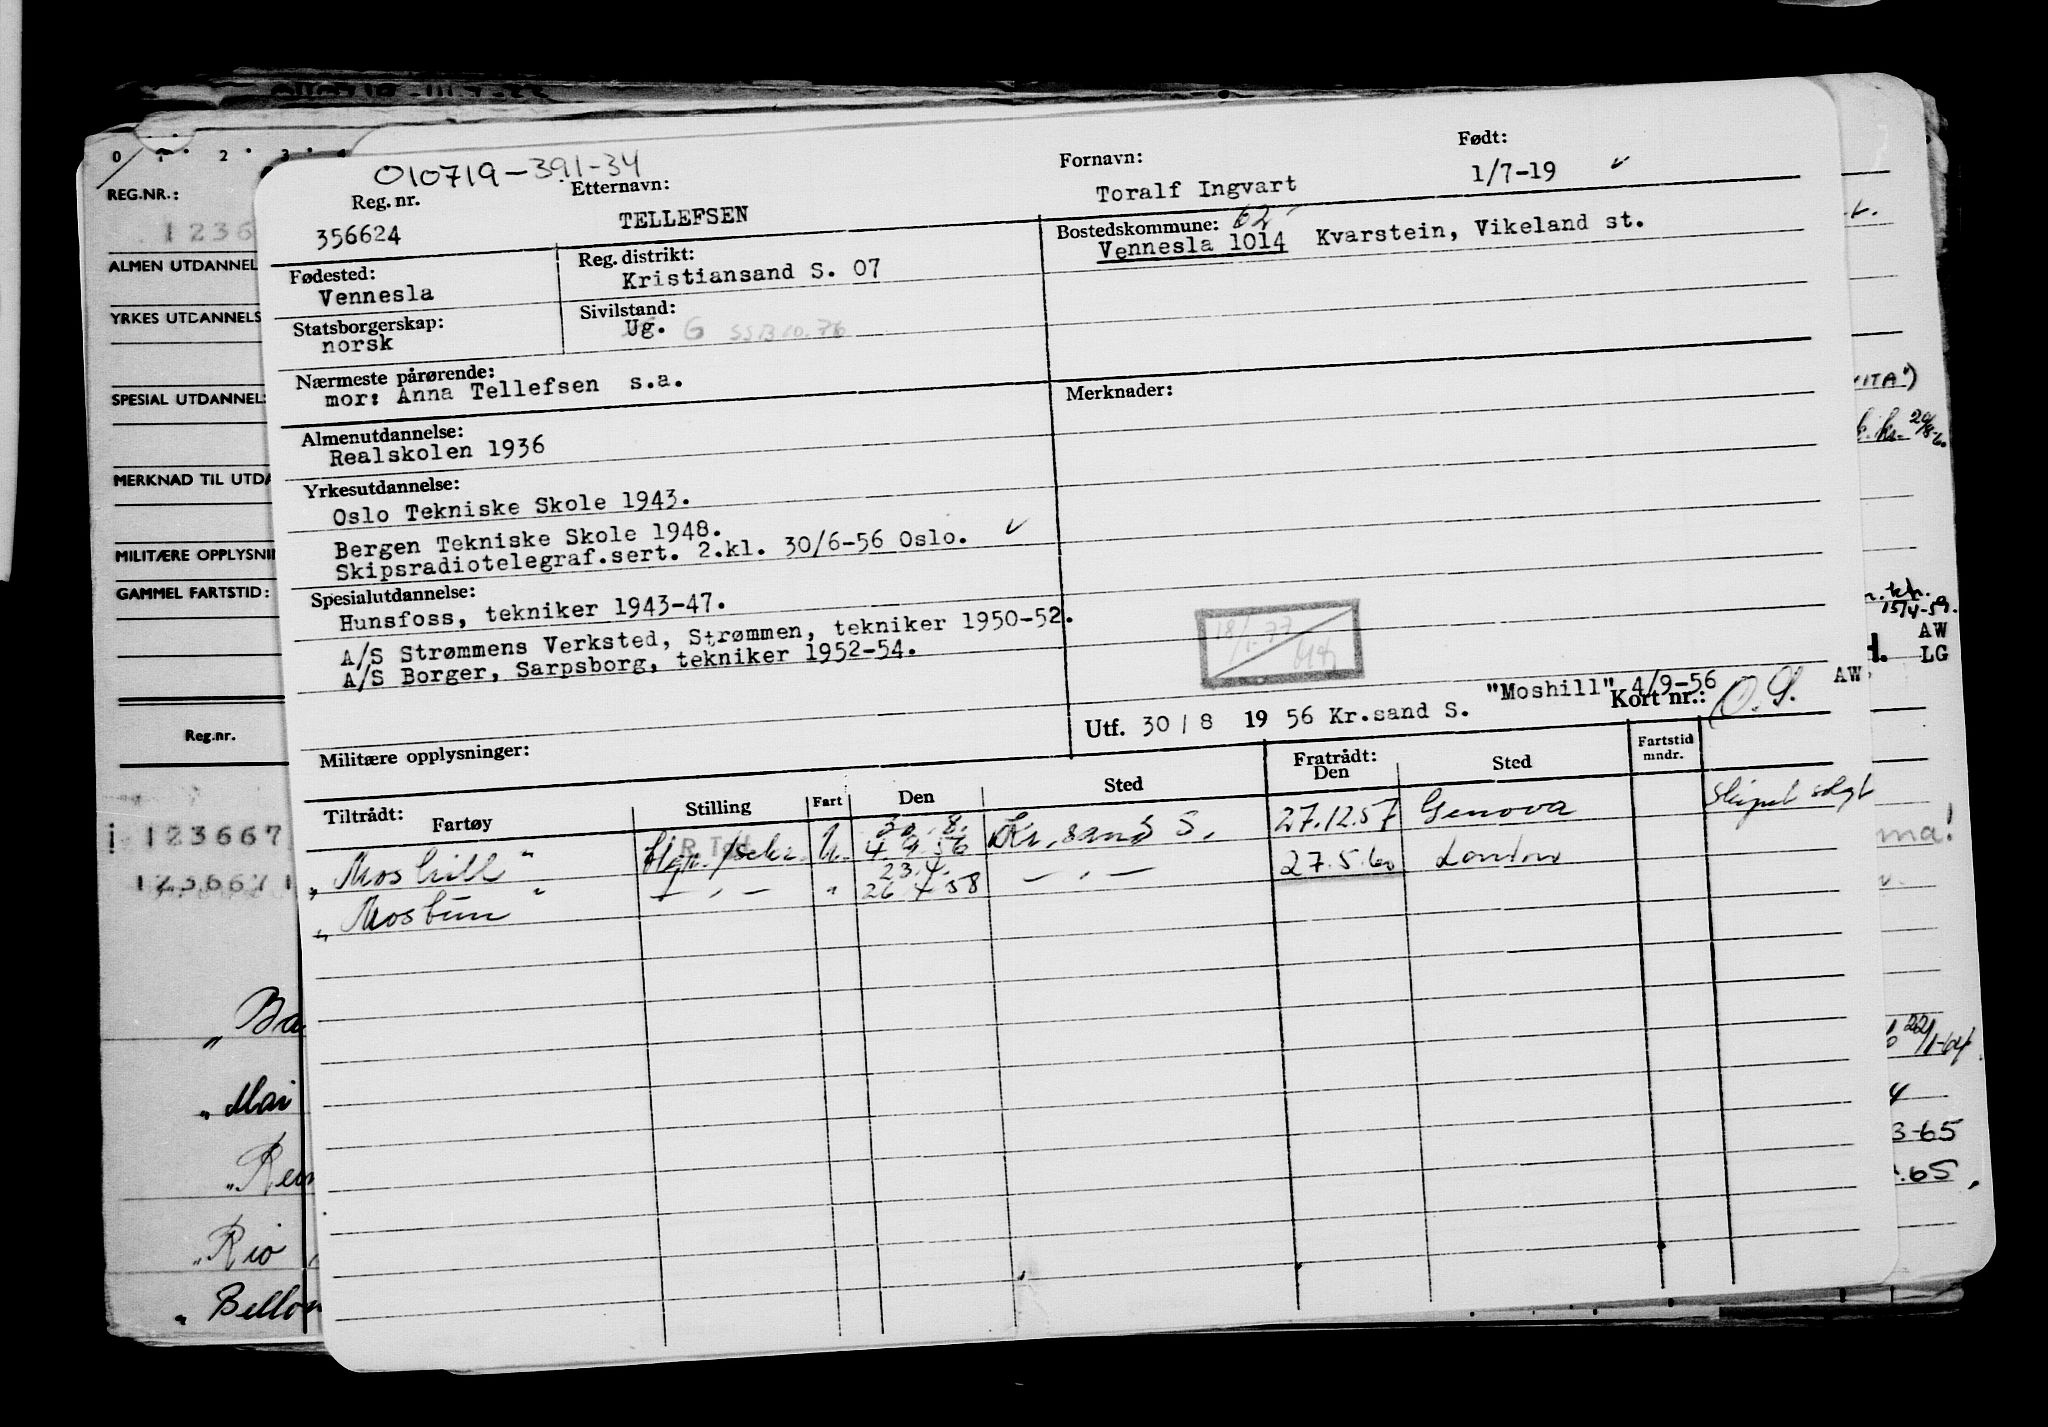 010719-391-34
Reg. nr.
356624
Etternavn:
TELLEFSEN
Fornavn:
Toralf Ingvart
Født:
1/7-19
Fødested:
Vennesla
Reg. distrikt:
Kristiansand S. 07
Bostedskommune: 62
Vennesla 1014 Kvarstein, Vikeland st.
Statsborgerskap:
norsk
Sivilstand:
Ug. G
Nærmeste pårørende:
mor: Anna Tellefsen s.a.
Merknader:
Almenutdannelse:
Realskolen 1936
Yrkesutdannelse:
Oslo Tekniske Skole 1943.
Bergen Tekniske Skole 1948.
Skipsradiotelegraf.sert. 2.kl. 30/6-56 Oslo.
Spesialutdannelse:
Hunsfoss, tekniker 1943-47.
A/S Strømmens Verksted, Strømmen, tekniker 1950-52.
A/S Borger, Sarpsborg, tekniker 1952-54.
"Moshill" 4/9-56 AW.
Utf. 30/8 19 56 Kr.sand S. Kort nr.:
Militære opplysninger:
Tiltrådt: Fartøy Stilling Fart Den Sted Fratrådt: Den Sted Fartstid mndr.
"Moshill" U. 30.8. 4.9.56 Kr.sand S. 27.12.57 Genova Skipet solgt
"Mosbim" - " - " 23.4. 26.4.58 - " - 27.5.60 London
0 1 2 3 4
REG.NR.:
1236
ALMEN UTDANNEL
YRKES UTDANNELS
SPESIAL UTDANNEL
MERKNAD TIL UTDA
MILITÆRE OPPLYSNI
GAMMEL FARTSTID:
Reg.nr.
123667
123667
"Ba
"Mar
"Rio
"Bellon
VITA")
15/4-59.
AW
LG
ma!
22/1-64
4
3-65
.65